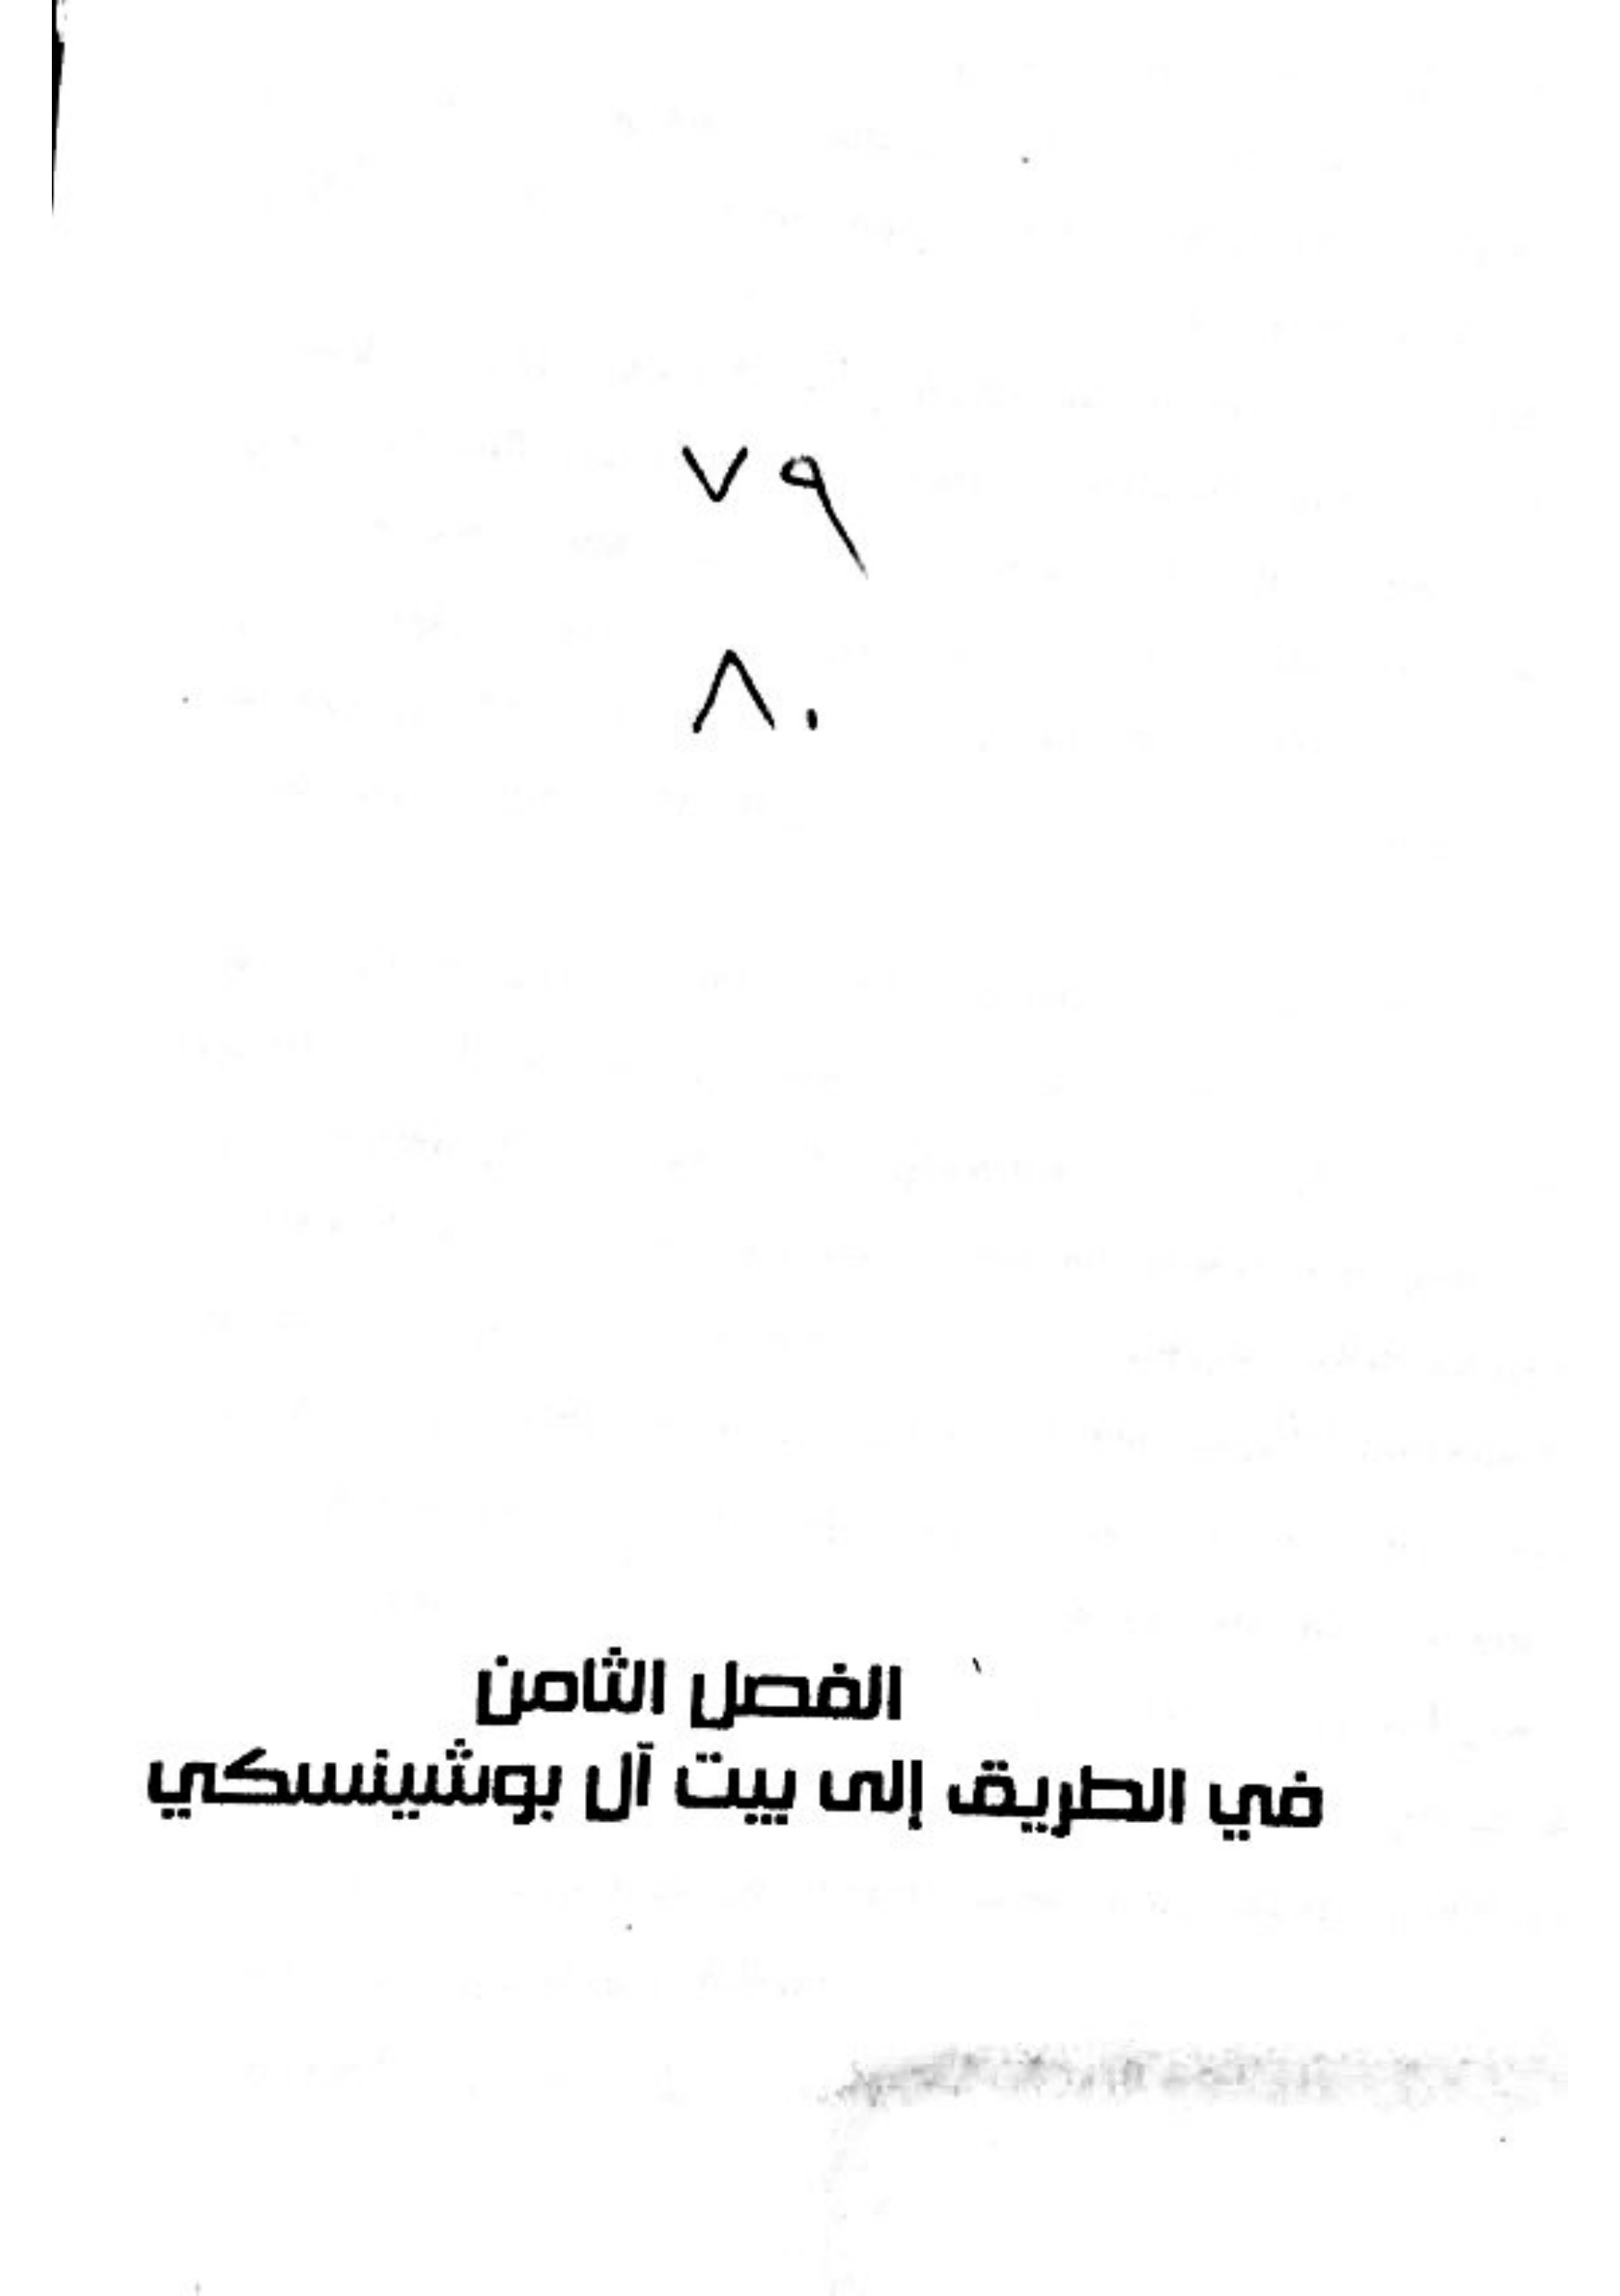 ٧٩
٨٠
الفصل الثامن
في الطريق إلى بيت آل بوشينسكي